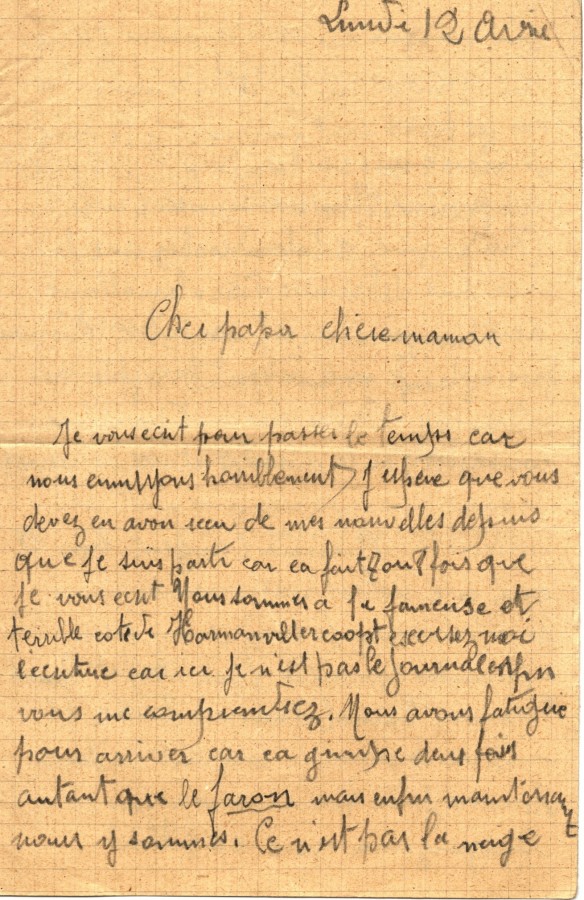 Lundi 12 Avril
Cher papa chere maman
Je vous ecrit pour passer le temps car
nous ennuyons horriblement J'espere que vous
devez en avoir recu de mes nouvelles depuis
que je suis parti car ca fait 7 ou 8 fois que
je vous ecrit Nous sommes a fameuse et
terrible cote de excusez moi
l'ecriture car ici je n'est pas le journal enfin
vous me comprendrez. Nous avons fatigue
pour arriver car ca grimpe deux fois
autant que le faron mais enfin maintenant
nous y sommes. Ce n'est pas la neige